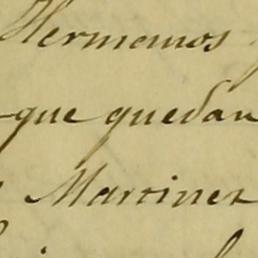 Hermanos
que quedan
Martinez